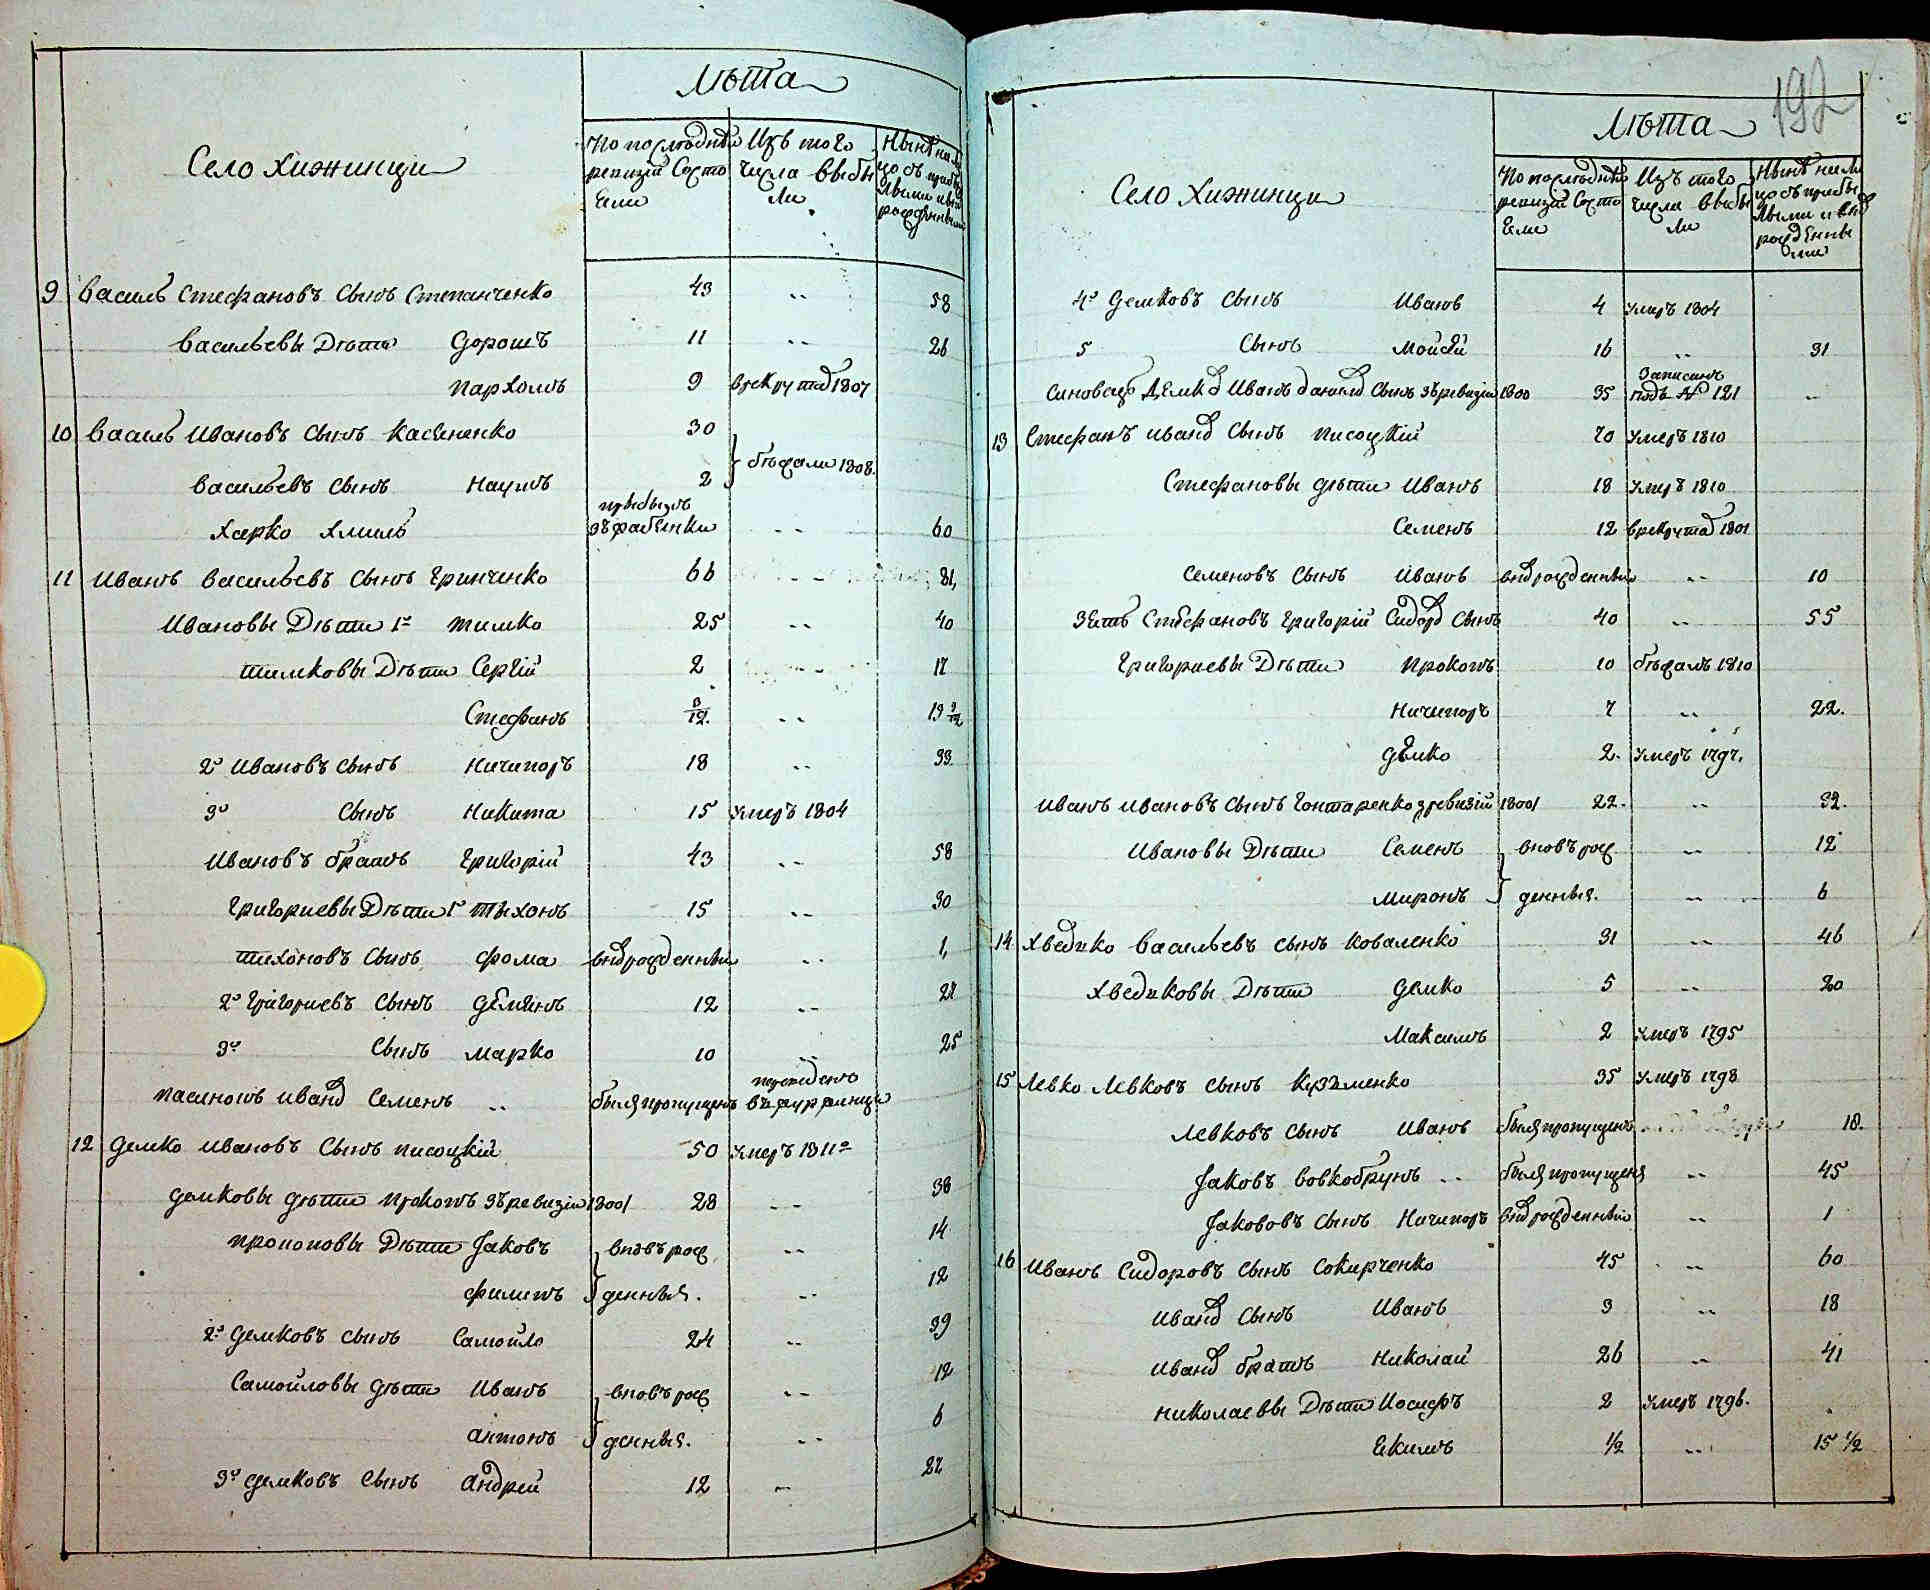 Лѣта
Село Хижинци
По последнѣй ревизіи Состояли
Изъ того числа выбыли
Нынѣ на лицо съ прибылыми и вновь рожденными
9 Василь Стефановъ Сынъ Степанченко 43 .. 58
Васильевы Дѣти Дорошъ 11 .. 26
Пархомъ 9 в рекруты в 1807
10 Василь Ивановъ Сынъ Касяненко 30
бѣжали 1808.
Васильевъ Сынъ Наумъ 2
прибылъ
Харко Хмиль зъ Фабіянки .. 60
11 Иванъ Васильевъ Сынъ Гринченко 66 .. 81,
Ивановы Дѣти 1й Тимко 25 .. 40
Тимковы Дѣти Сергій 2 .. 17
Стефанъ 9/12. .. 15 9/12
2й Ивановъ Сынъ Ничипоръ 18 .. 33.
3й Сынъ Никита 15 умеръ 1804
Ивановъ братъ Григорій 43 .. 58
Григориевы Дѣти 1й Тихонъ 15 .. 30
Тихоновъ Сынъ Фома вновьрожденный .. 1,
2й Григориевъ Сынъ Демянъ 12 .. 27
3й Сынъ Марко 10 .. 25
переведенъ
Пасинокъ Иванд Семенъ .. былъ пропущенъ въ
12 Демко Ивановъ Сынъ Писоцкій 50 умеръ 1811го
Демковы дѣти Прокопъ зъ ревизіи 1800/ 28 .. 38
Прокоповы Дѣти Яковъ вновърож .. 14
Филипъ денныя. .. 12
2й Демковъ Сынъ Самойло 24 .. 39
Самойловы дѣти Иванъ вновърож .. 12
Антонъ денныя. .. 6
3й Демковъ Сынъ Андрей 12 .. 27
192
Лѣта
Село Хижинци
По последнѣй ревизіи Состояли
Изъ того числа выбыли
Нынѣ на лицо съ прибылыми и вновь рожденными
4й Демковъ Сынъ Иванъ 4 умеръ 1804
5 Сынъ Мойсѣй 16 .. 31
записанъ
Синовецъ Демков Иванъ Данилов Сынъ зъ ревизіи 1800 35 подъ № 121 ..
13 Стефанъ Иванов Сынъ Писоцкій 70 умеръ 1810
Стефановы дѣти Иванъ 18 умеръ 1810
Семенъ 12 в рекруты 1801
Семеновъ Сынъ Иванъ вновьрожденный .. 10
Зять Стефановъ Григорій Сидоров Сынъ 40 .. 55
Григориевы Дѣти Прокопъ 10 бѣжалъ 1810
Ничипоръ 7 .. 22.
Демко 2. умеръ 1797.
Иванъ Ивановъ Сынъ Гонтаренко з ревизіи 1800/ 22. .. 32.
Ивановы Дѣти Семенъ вновърож .. 12
Миронъ денныя. .. 6
14 Хведико Васильевъ Сынъ Коваленко 31 .. 46
Хведиковы Дѣти Демко 5 .. 20
Максимъ 2 умеръ 1795
15 Левко Левковъ Сынъ Кузьменко 35 умеръ 1798
Левковъ Сынъ Иванъ былъ пропущенъ 18.
Яковъ Вовкобрунъ .. былъ пропущенъ .. 45
Якововъ Сынъ Ничипоръ вновьрожденный .. 1
16 Иванъ Сидоровъ Сынъ Сокирченко 45 .. 60
Иванд Сынъ Иванъ 3 .. 18
Иванд братъ Николай 26 .. 41
Николаевы Дѣти Иосифъ 2 умеръ 1796.
Екимъ 1/2 .. 15 1/2